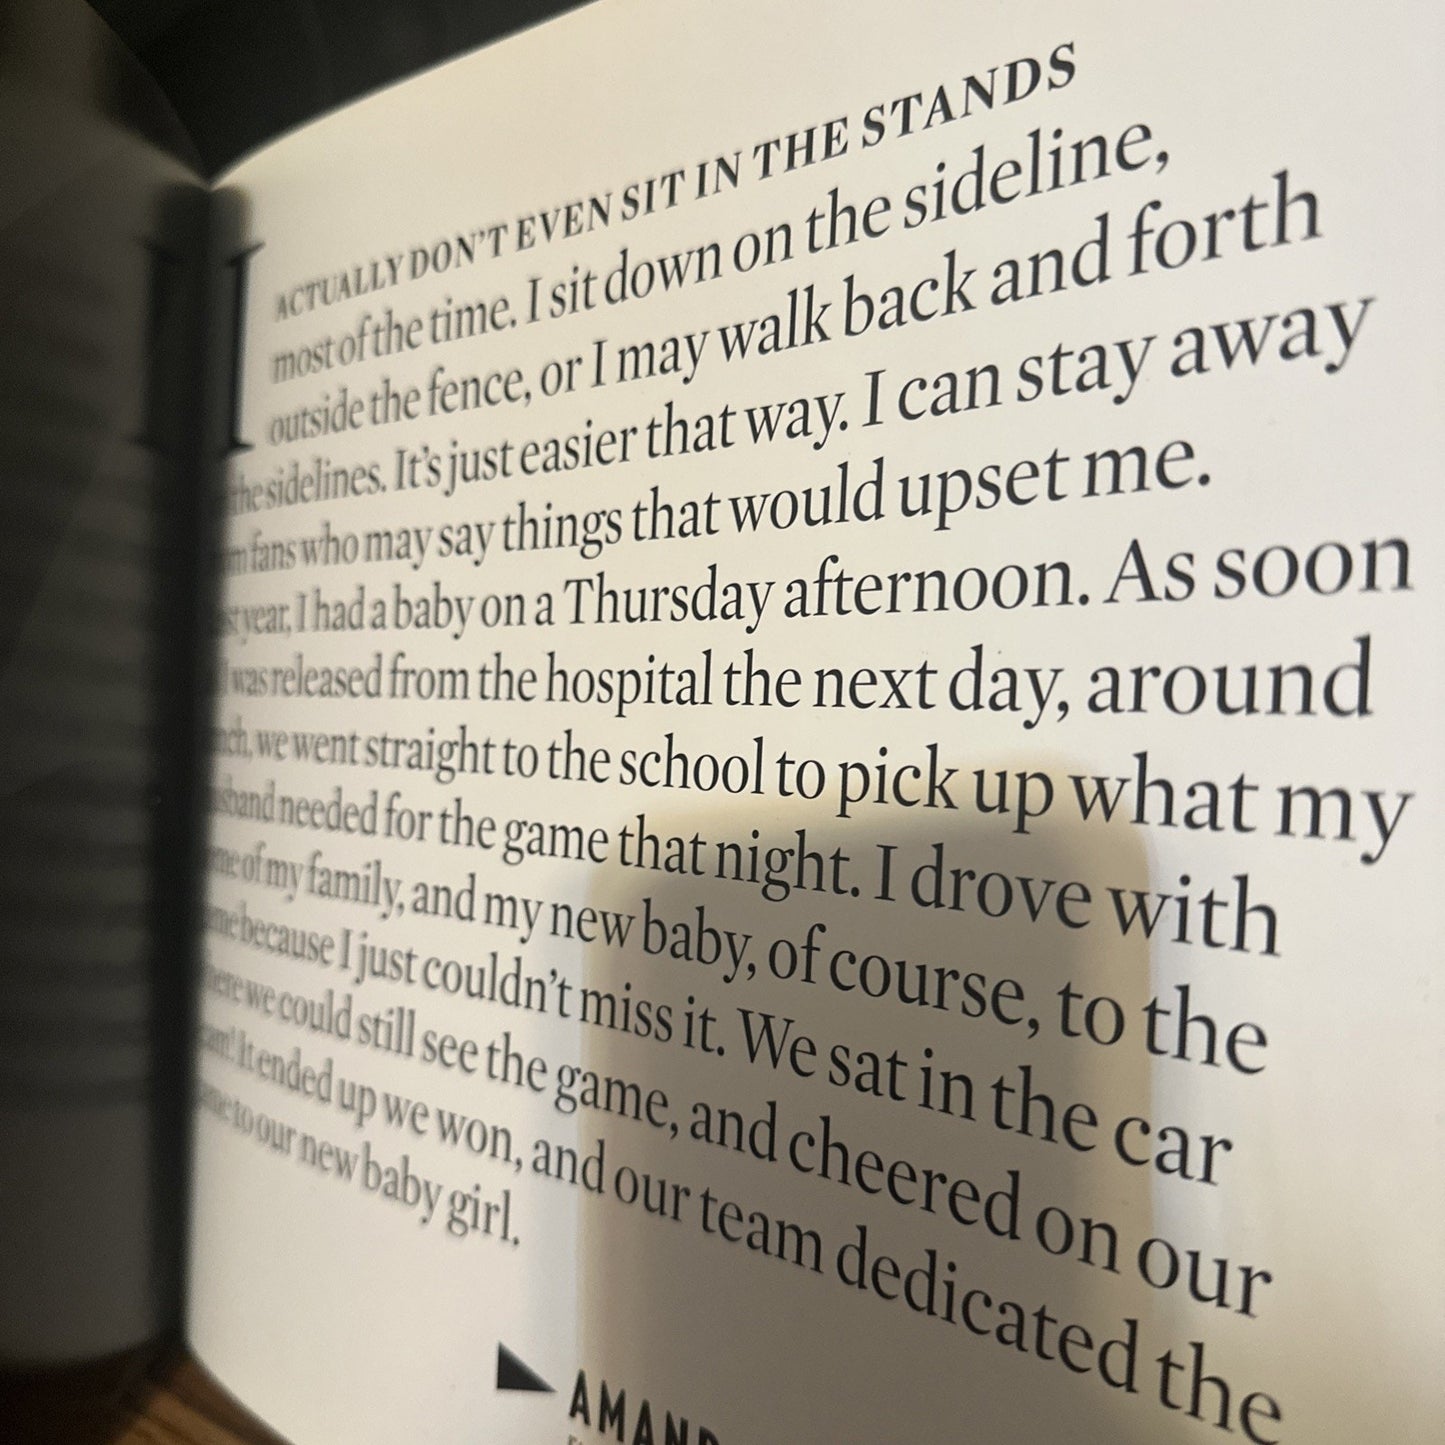 I ACTUALLY DON'T EVEN SIT IN THE STANDS
most of the time. I sit down on the sideline,
outside the fence, or I may walk back and forth
the sidelines. It's just easier that way. I can stay away
fans who may say things that would upset me.
year, I had a baby on a Thursday afternoon. As soon
I was released from the hospital the next day, around
we went straight to the school to pick up what my
needed for the game that night. I drove with
of my family, and my new baby, of course, to the
because I just couldn't miss it. We sat in the car
we could still see the game, and cheered on our
It ended up we won, and our team dedicated the
to our new baby girl.